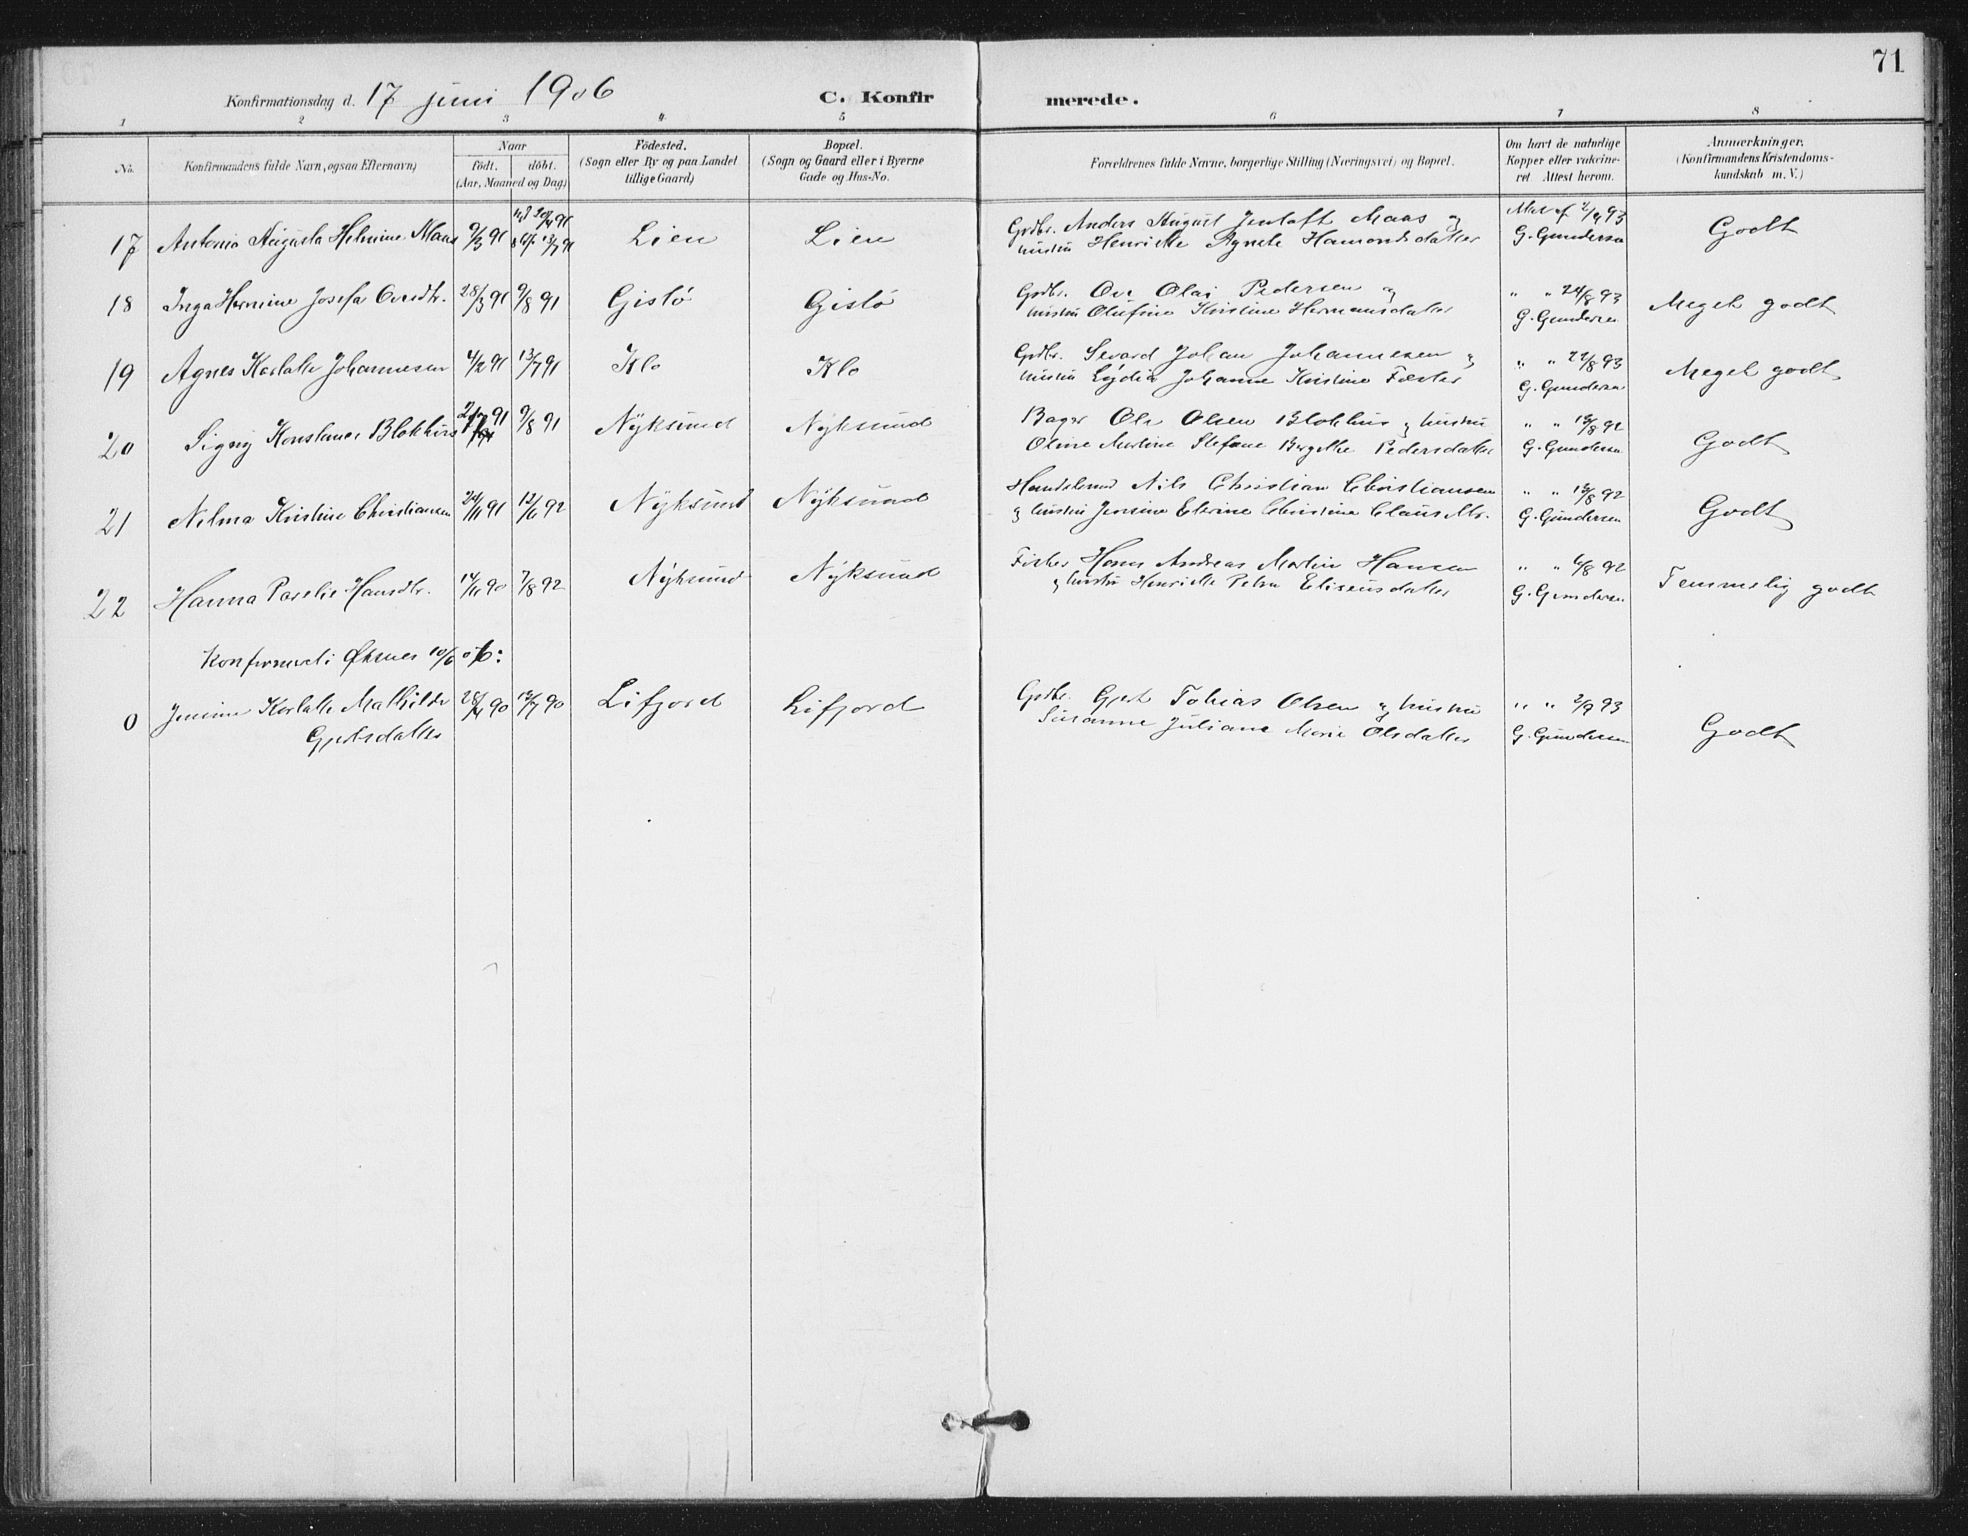 71
Konfirmationsdag d. 17 juni 1906 C. Konfirmerede.
1 2 3 4 5 6 7 8
No. Konfirmandens fulde Navn, ogsaa Efternavn) Naar födt. döbt. (Aar, Maaned og Dag) Födested. (Sogn eller By og paa Landet tillige Gaard) Bopæl. (Sogn og Gaard eller i Byerne Gade og Hus-No. Forældrenes fulde Navne, borgerlige Stilling (Næringsvei) og Bopæl. Om havt de naturlige Kopper eller vakcineret Attest herom. Anmærkninger. (Konfirmandens Kristendomskundskab m. V.)
17 Antonia Augusta Helmine Maas 9/3 91 20/4 91 13/7 91 Lien Lien Grdbr. Anders August Jentoft Maas og
hustru Henriette Agnete Hamondsdatter Att. af 2/9 93 G. Gundersen Godt
18 Inga Hermine Josefa Ovedtr. 28/3 91 9/8 91 Gislö Gislö Grdbr. Ove Olai Pedersen og
hustru Olufine Kristine Hermansdatter " " 24/8 93 G. Gundersen Meget godt
19 Agnes Karlotte Johannesen 4/2 91 13/7 91 Klo Klo Grdbr. Sevard Johan Johannesen og
hustru Lydia Johanne Kristine Fæster " " 22/8 93 G. Gundersen Meget godt
20 Signy Konstance Blokhus 91 9/8 91 Nyksund Nyksund Bager Ole Olsen Blokhus og hustru
Oline Martine Stefane Bergitte Pedersdatter " " 13/8 92 G. Gundersen Godt
21 Nelma Kristine Christiansen 24/11 91 12/6 92 Nyksund Nyksund Handelsmd Nils Christian Christiansen
og hustru Jensine Elerine Christine Clausdtr. " " 13/8 92 G. Gundersen Godt
22 Hanna Parelie Hansdtr. 14/11 90 7/8 92 Nyksund Nyksund Fisker Hans Andreas Martin Hansen
og hustru Henriette Petra Eliseusdatter " " 6/8 92 G. Gundersen Temmelig godt
Konfirmert i Öksnes 10/6 06:
0 Jensine Karlotte Mathilde 28/4 90 13/7 90 Lifjord Lifjord Grdbr. Gjert Tobias Olsen og hustru " " 2/9 93
Gjertsdatter Susanne Juliane Marie Olsdatter G. Gundersen Godt